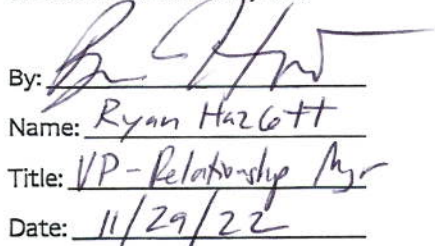 By:
Name: Ryan Hazlett
Title: VP-Relationship Mgr
Date: 11/29/22